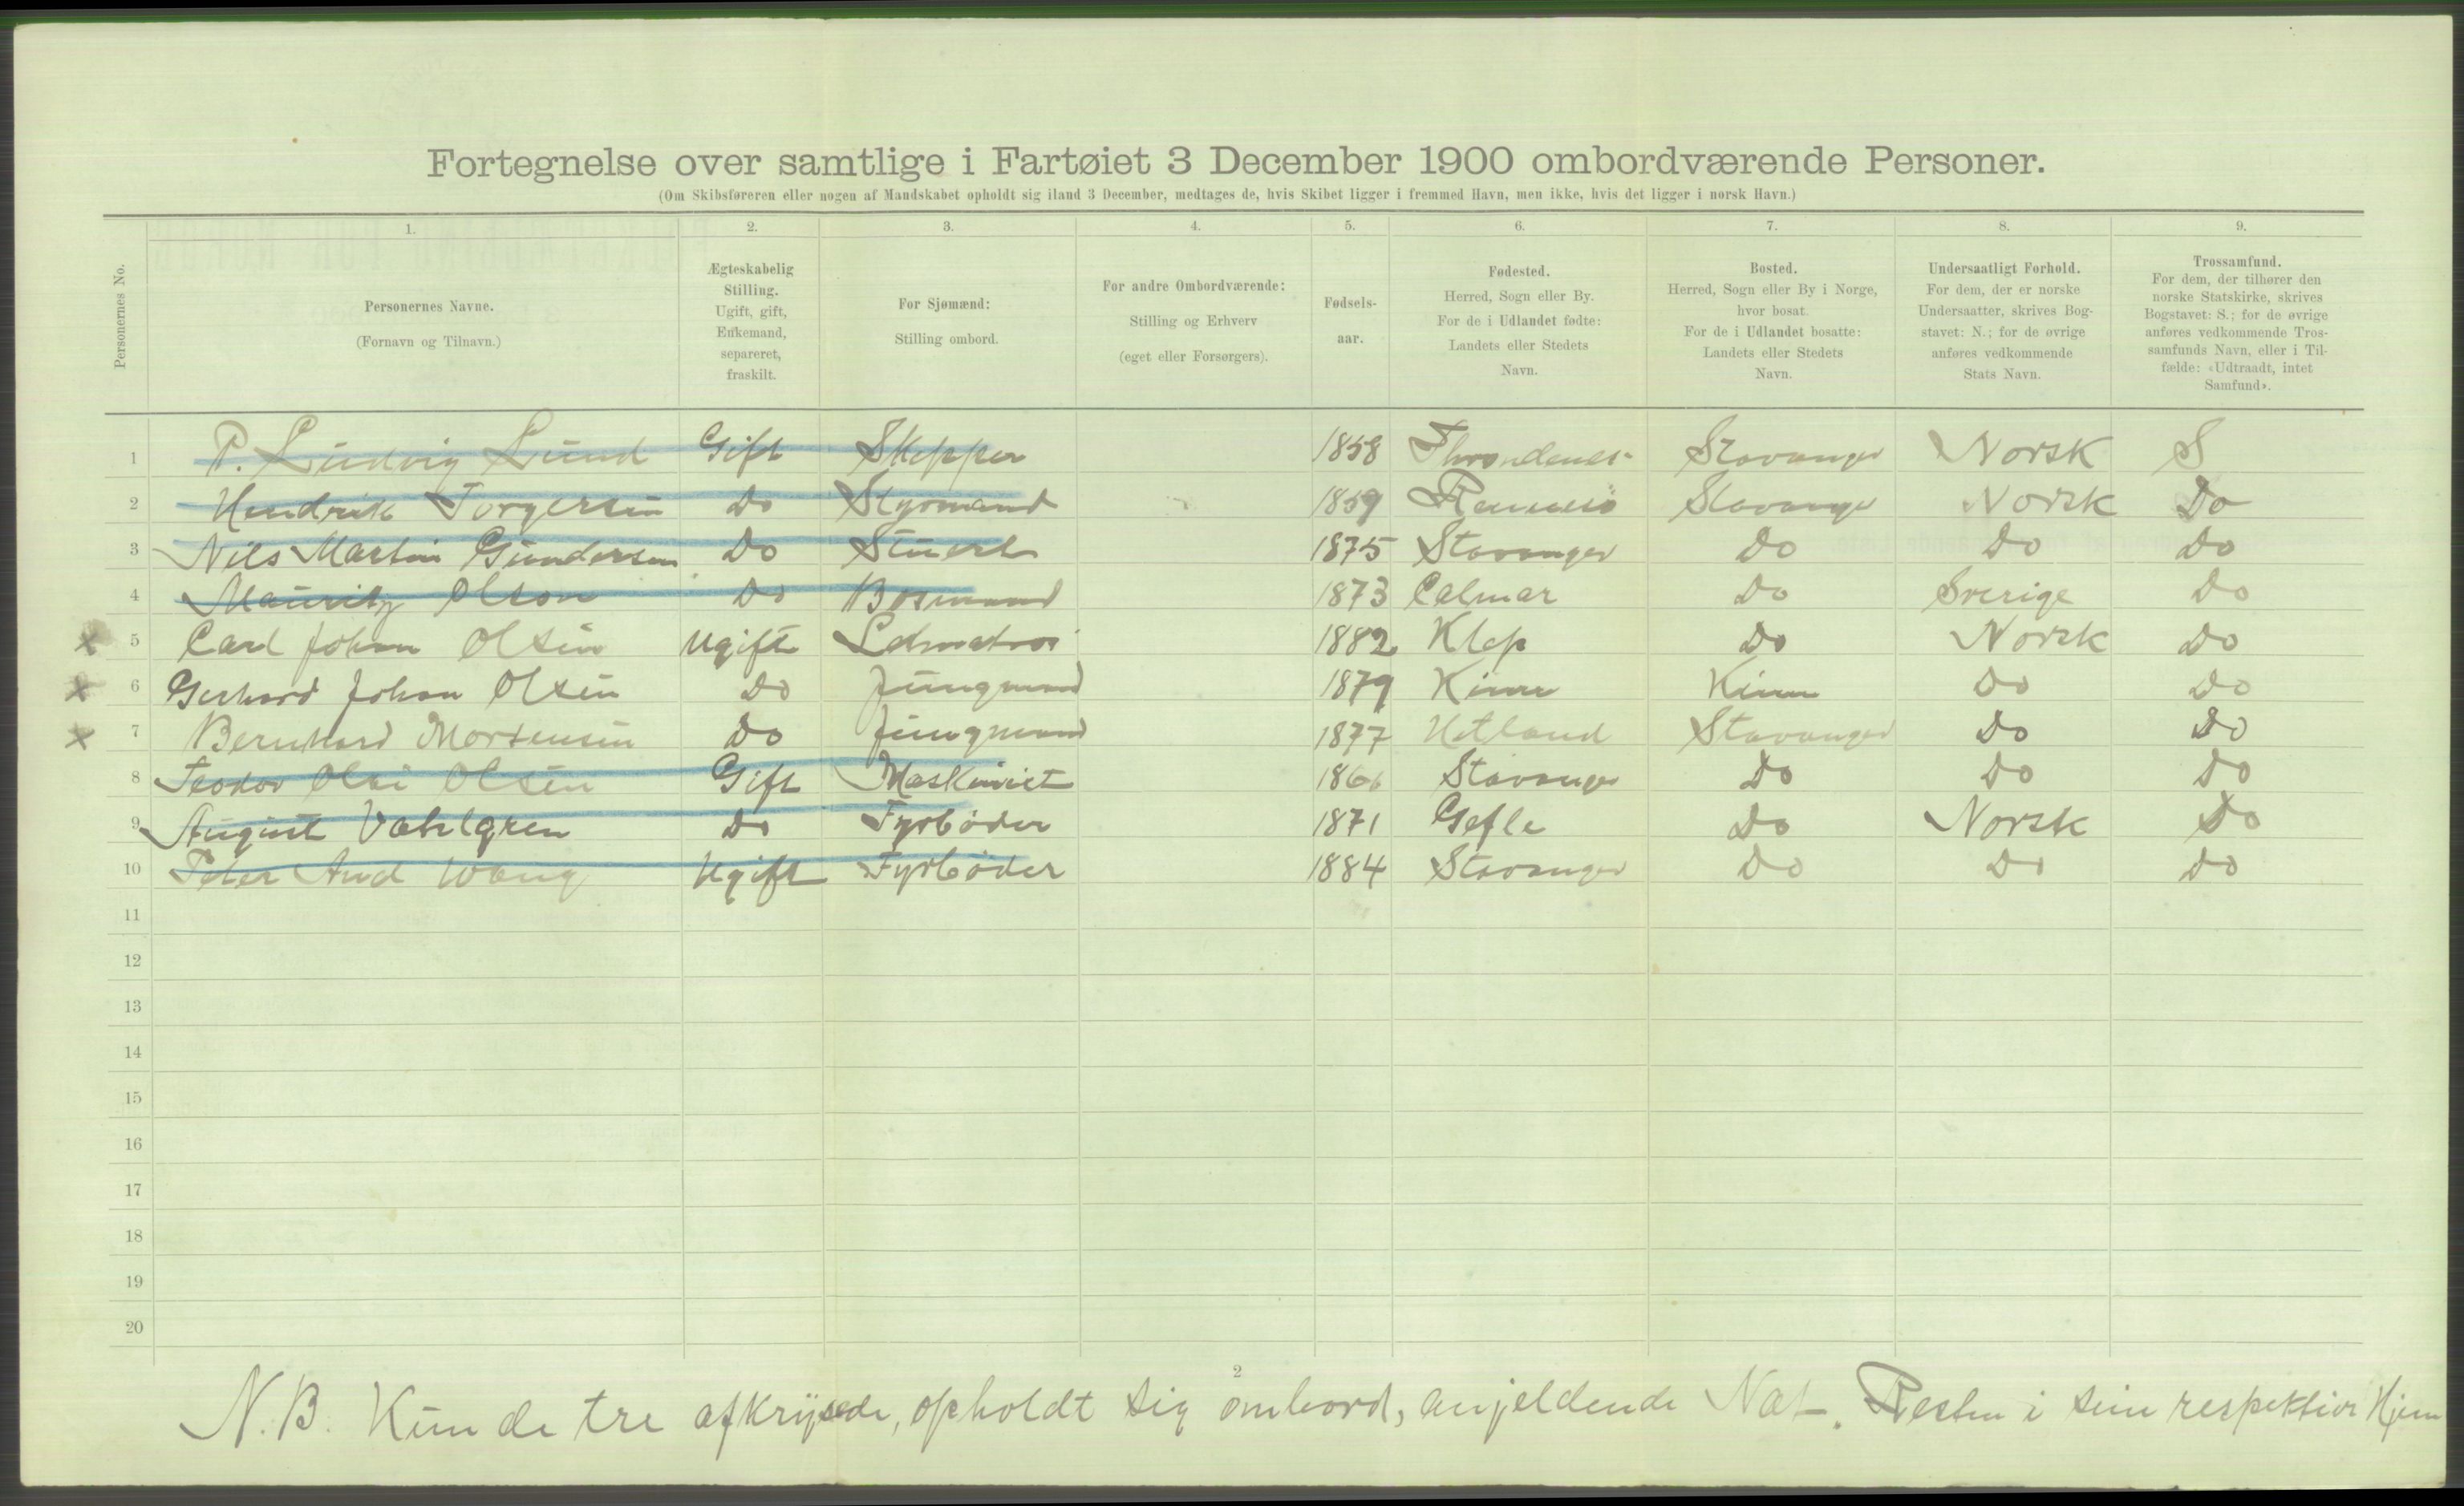 Fortegnelse over samtlige i Fartøiet 3 December 1900 ombordværende Personer.
(Om Skibsføreren eller nogen af Mandskabet opholdt sig iland 3 December, medtages de, hvis Skibet ligger i fremmed Havn, men ikke, hvis det ligger i norsk Havn.)
Personernes No.
1. 2. 3. 4. 5. 6. 7. 8. 9.
Personernes Navne.
(Fornavn og Tilnavn.)
Ægteskabelig
Stilling.
Ugift, gift,
Enkemand,
separeret,
fraskilt.
For Sjømænd:
Stilling ombord.
For andre Ombordværende:
Stilling og Erhverv
(eget eller Forsørgers).
Fødsels-
aar.
Fødested.
Herred, Sogn eller By.
For de i Udlandet fødte:
Landets eller Stedets
Navn.
Bosted.
Herred, Sogn eller By i Norge,
hvor bosat.
For de i Udlandet bosatte:
Landets eller Stedets
Navn.
Undersaatligt Forhold.
For dem, der er norske
Undersaatter, skrives Bog-
stavet: N.; for de øvrige
anføres vedkommende
Stats Navn.
Trossamfund.
For dem, der tilhører den
norske Statskirke, skrives
Bogstavet: S.; for de øvrige
anføres vedkommende Tros-
samfunds Navn, eller i Til-
fælde: «Udtraadt, intet
Samfund».
1 P. Ludvig Lund Gift Skipper 1858 Stavanger Norsk S
2 Hendrik Torgersen Do Styrmand 1859 Rennesø Stavanger Norsk Do
3 Nils Martin Gundersen Do Stuert 1875 Stavanger Do Do Do
4 Mauritz Olson Do Bosmand 1873 Calmar Do Sverige Do
x 5 Carl Johan Olsen Ugift 1882 Klep Do Norsk Do
x 6 Gerhard Johan Olsen Do Jungmand 1879 Kinn Kinn Do Do
x 7 Bernhard Mortensen Do Jungmand 1877 Hetland Stavanger Do Do
8 Teodor Olsen Gift Maskinist 1866 Stavanger Do Do Do
9 August Vahlgren Do Fyrbøder 1871 Gefle Do Norsk Do
10 Peter And Wang Ugift Fyrbøder 1884 Stavanger Do Do Do
11
12
13
14
15
16
17
18
19
20
2
N.B. Kun de tre afkrysede, opholdt sig ombord, angjeldende Nat. Resten i sine respektive Hjem